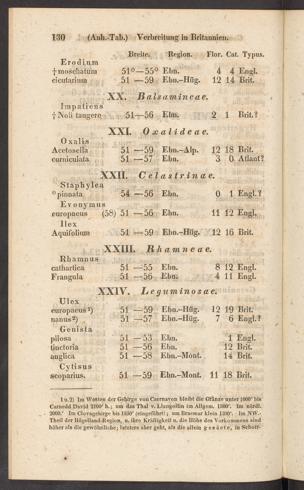 130 (Anh.-Tab.) Verbreitung in Britannien.
Breite. Region. Flor. Cat. Typus.
Erodium
† moschatum 51°—55° Ebn. 4 4 Engl.
cicutarium 51 —59 Ebn.-Hüg. 12 14 Brit.
XX. Balsamineae.
Impatiens
† Noli tangere 51—56 Ebn. 2 1 Brit.?
XXI. Oxalideae.
Oxalis
Acetosella 51 —59 Ebn.-Alp. 12 18 Brit.
corniculata 51 —57 Ebn. 3 0 Atlant?
XXII. Celastrinae.
Staphylea
° pinnata 54 —56 Ebn. 0 1 Engl.?
Evonymus
europaeus (58) 51 —56 Ebn. 11 12 Engl.
Ilex
Aquifolium 51 —59 Ebn.-Hüg. 12 16 Brit.
XXIII. Rhamneae.
Rhamnus
cathartica 51 —55 Ebn. 8 12 Engl.
Frangula 51 —56 Ebn. 4 11 Engl.
XXIV. Leguminosae.
Ulex
europaeus ¹) 51 —59 Ebn.-Hüg. 12 19 Brit.
nanus ²) 51 —57 Ebn.-Hüg. 7 6 Engl.?
Genista
pilosa 51 —53 Ebn. 1 Engl.
tinctoria 51 —56 Ebn. 12 Brit.
anglica 51 —58 Ebn.-Mont. 14 Brit.
Cytisus
scoparius. 51 —59 Ebn.-Mont. 11 18 Brit.
1 u. 2) Im Westen der Gebirge von Caernavon bleibt die Gränze unter 1000' bis
Carnedd David 2100' h.; um das Thal v. Llangollin im Allgem. 1300'. Im nördl.
2000.' Im Cluyagebirge bis 1850' (eingeführt); um Braemar klein 1200'. Im NW.-
Theil der Hügelland-Region, u. ihre Kräftigkeit u. die Höhe des Vorkommens sind
höher als die gewöhnliche; letztere aber geht, als die allein gesäete, in Schott-